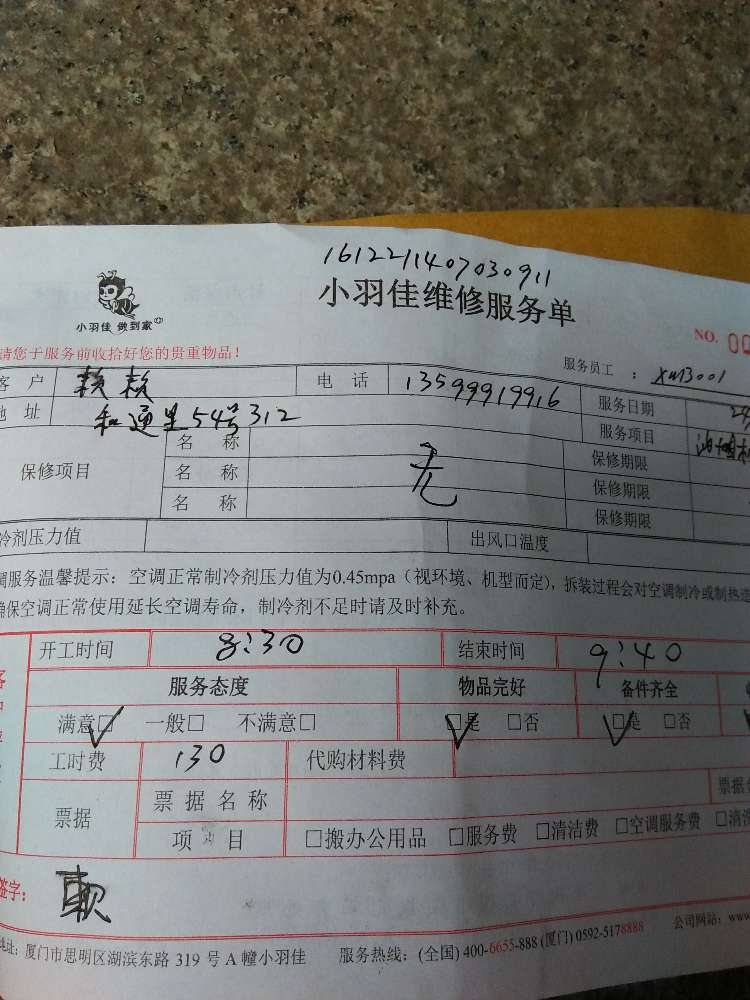 1612211407030911
小羽佳 做到家
小羽佳维修服务单
NO. 00
请您于服务前收拾好您的贵重物品!
服务员工 : XM3001
客 户 赖 电 话 13599919916 服务日期
地 址 和通里54号312 服务项目
保修项目 名 称 无 保修期限
名 称 保修期限
名 称 保修期限
冷剂压力值 出风口温度
调服务温馨提示:空调正常制冷剂压力值为0.45mpa(视环境、机型而定),拆装过程会对空调制冷或制热造
确保空调正常使用延长空调寿命,制冷剂不足时请及时补充。
开工时间 8:30 结束时间 9:40
服务态度 物品完好 备件齐全
满意☑ 一般□ 不满意□ ☑是 □否 ☑是 □否
工时费 130 代购材料费
票据 票 据 名 称 票据
项 目 □搬办公用品 □服务费 □清洁费 □空调服务费 □清洗
签字:
地址:厦门市思明区湖滨东路 319 号 A 幢小羽佳 服务热线:(全国) 400-6655-888 (厦门) 0592-5178888 公司网站:www.